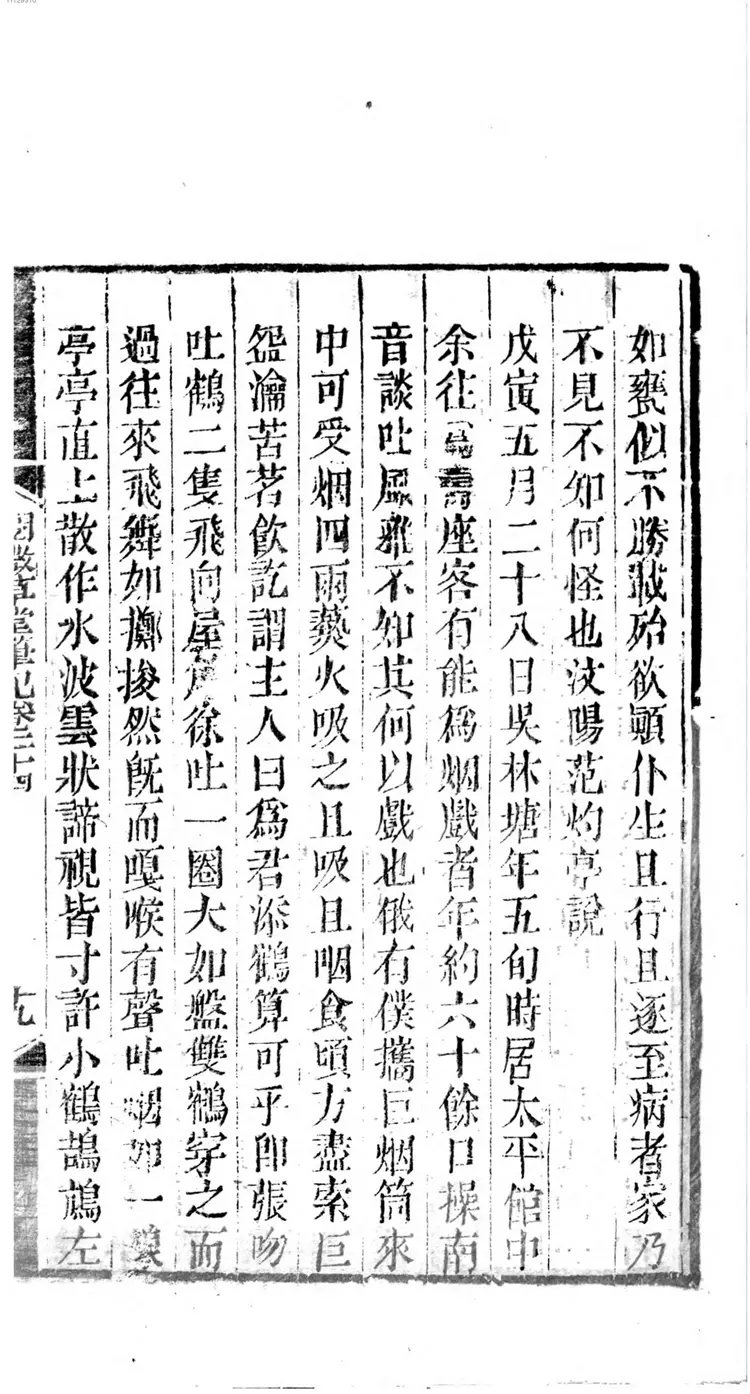 如甕似不勝載殆欲顛仆生且行且逐至病者家乃
不見不知何怪也汶陽范灼亭說
戊寅五月二十八日吳林塘年五旬時居太平館中
余往爲壽座客有能爲烟戲者年約六十餘口操南
音談吐風雅不知其何以戲也俄有僕攜巨烟筒來
中可受烟四兩爇火吸之且吸且咽食頃方盡索巨
盌瀹苦茗飮訖謂主人曰爲君添鶴算可乎卽張吻
吐鶴二隻飛向屋角徐吐一圈大如盤雙鶴穿之而
過往來飛舞如擲梭然旣而嘎喉有聲吐烟如一線
亭亭直上散作水波雲狀諦視皆寸許小鶴鵠鶬左
閱微草堂筆記卷二十四
十九
11129310